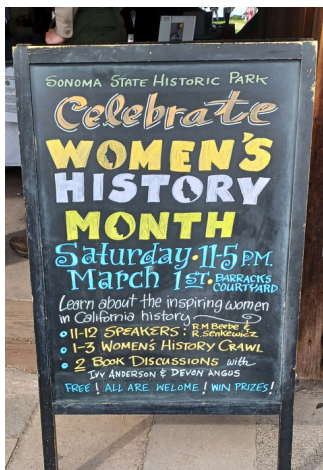 SONOMA STATE HISTORIC PARK
Celebrate
WOMEN'S
HISTORY
MONTH
Saturday • 11-5 P.M.
March 1ST • BARRACKS
COURTYARD
Learn about the inspiring women
in California history
• 11-12 SPEAKERS: R.M BEEBE &
R. SENKEWICZ
• 1-3 WOMEN'S HISTORY CRAWL
• 2 BOOK DISCUSSIONS with
IVY ANDERSON & DEVON ANGUS
FREE! ALL ARE WELOME! WIN PRIZES!